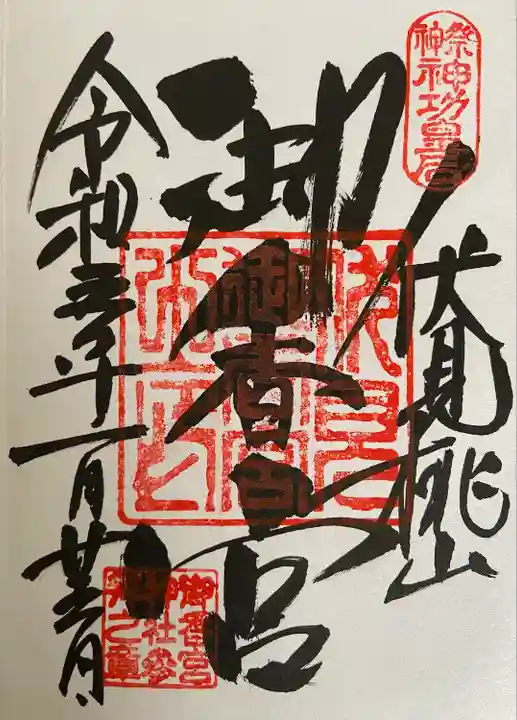 祭神
神功皇后
伏見桃山
御香宮
令和五年一月廿日
御香宮
神社参
拝之章